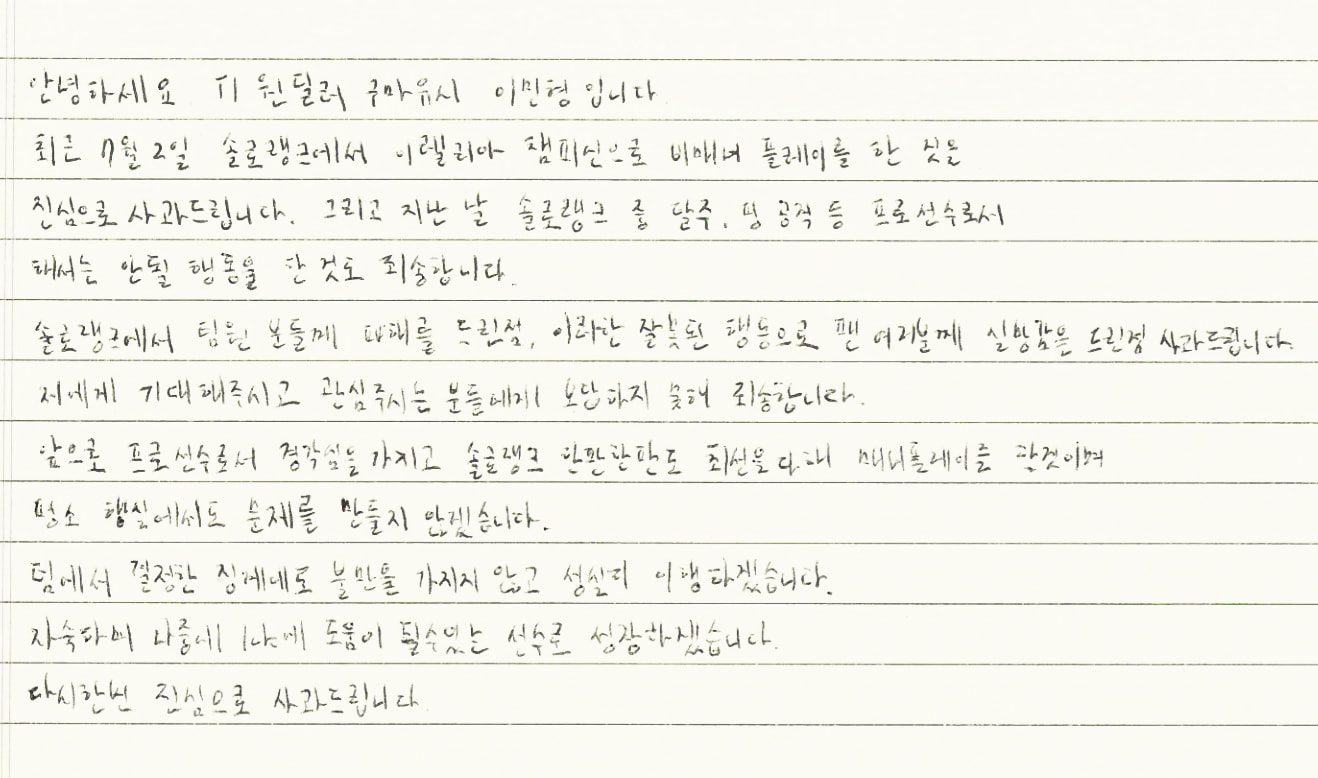 안녕하세요 T1 원딜러 구마유시 이민형 입니다
최근 7월 2일 솔로랭크에서 이렐리아 챔피언으로 비매너 플레이를 한 것은
진심으로 사과드립니다. 그리고 지난 날 솔로랭크 중 탈주, 핑 공격 등 프로선수로서
해서는 안될 행동을 한 것도 죄송합니다.
솔로랭크에서 팀원 분들께 피해를 드린점, 이러한 잘못된 행동으로 팬 여러분께 실망감을 드린점 사과드립니다.
저에게 기대해주시고 관심주시는 분들에게 보답하지 못해 죄송합니다.
앞으로 프로선수로서 경각심을 가지고 솔로랭크 한판한판도 최선을 다해 매너플레이를 할것이며
평소 행실에서도 문제를 만들지 않겠습니다.
팀에서 결정한 징계대로 불만을 가지지 않고 성실히 이행하겠습니다.
자숙하며 나중에 도움이 될수있는 선수로 성장하겠습니다.
다시한번 진심으로 사과드립니다